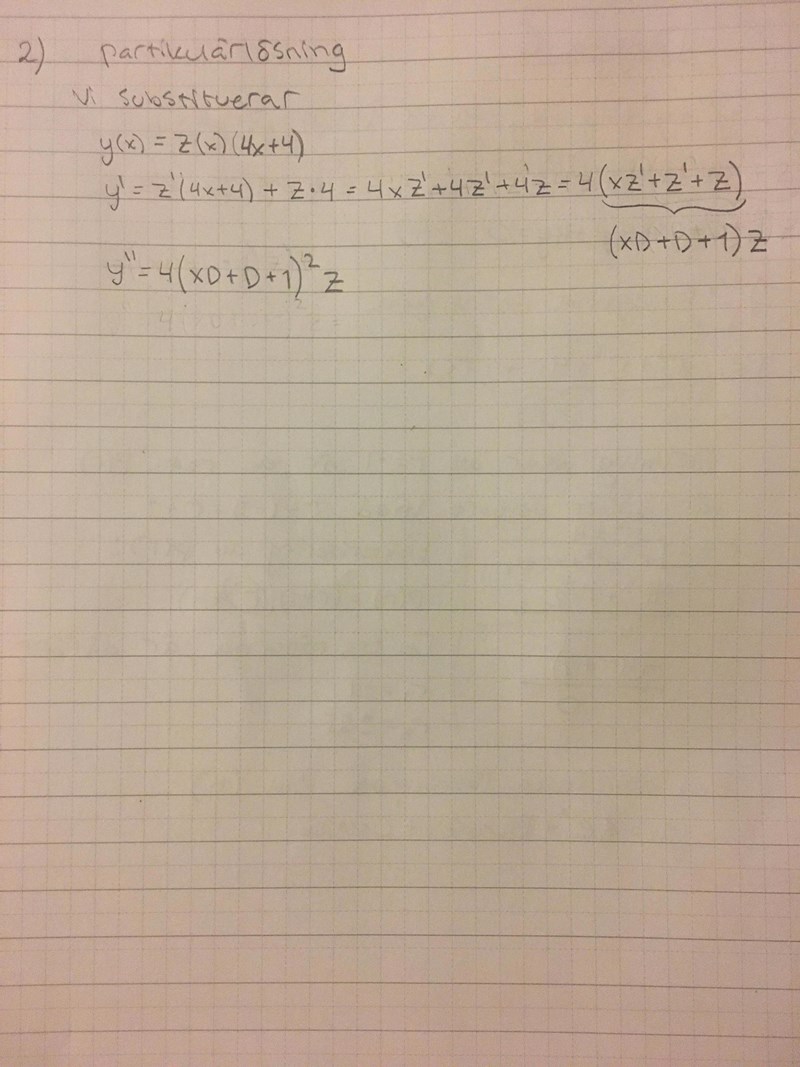 2) partikulärlösning
Vi substituerar
y(x) = z(x)(4x+4)
y' = z'(4x+4) + z·4 = 4xz'+4z'+4z = 4(xz'+z'+z)
(xD+D+1)z
y'' = 4(xD+D+1)²z